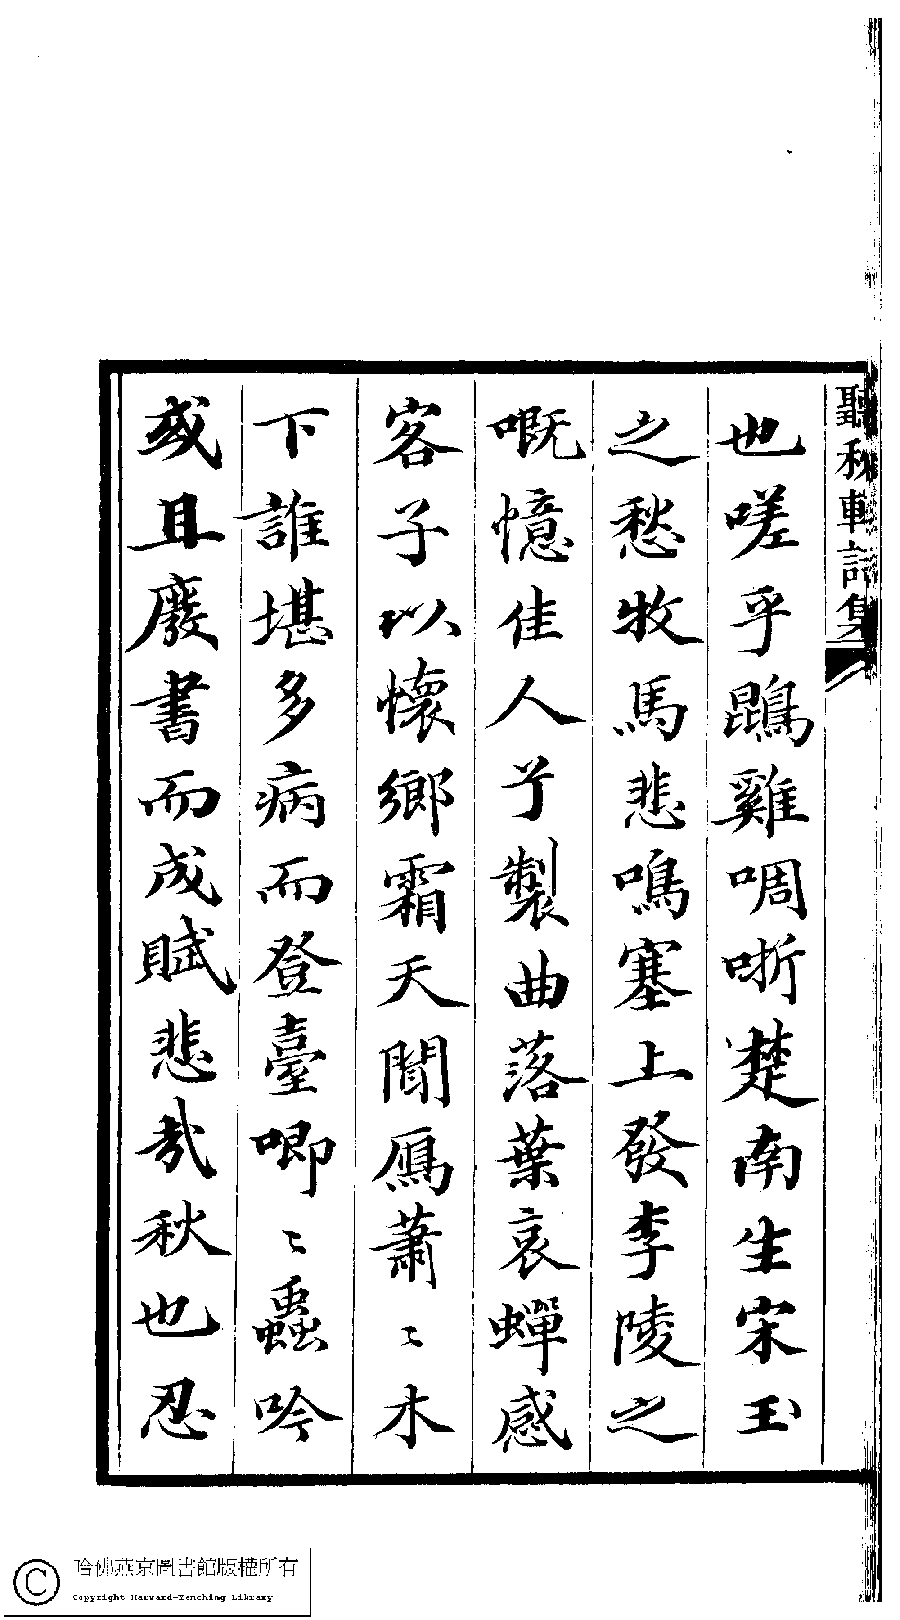 聽秋軒詩集
也嗟乎鵾雞啁哳楚南生宋玉
之愁牧馬悲鳴塞上發李陵之
嘅憶佳人兮製曲落葉哀蟬感
客子以懷鄉霜天聞鴈蕭〻木
下誰堪多病而登臺唧〻蟲吟
或且廢書而成賦悲哉秋也忍
哈佛燕京圖書館版權所有
Copyright Harvard-Yenching Library